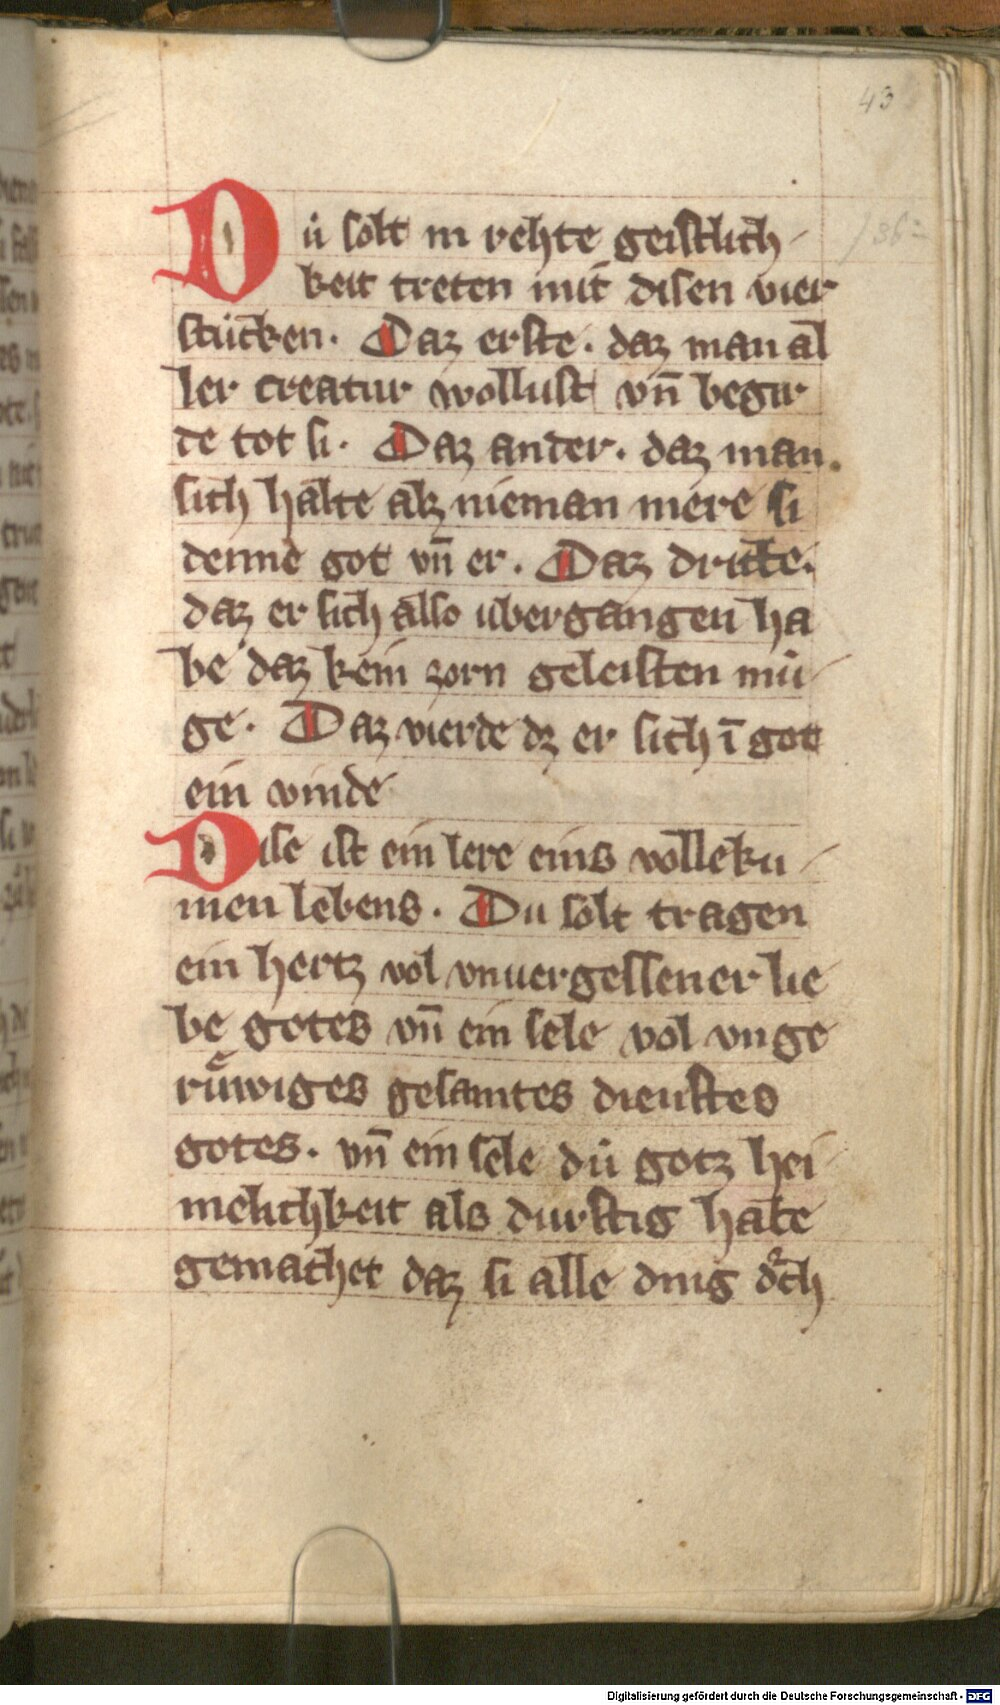 43
Dů solt in rehte geistlich
keit treten mit disen vier
stücken. Daz erste. daz man al
ler creatur wollust vn̄ begir
de tot si. Daz ander. daz man
sich halte alz nieman mere si
denne got vn̄ er. Daz dritte.
daz er sich also ubergangen ha
be daz kein zorn geleisten mů
ge. Daz vierde dz er sich ī got
ein vinde
Dise ist ein lere eins volleku
men lebens. Du solt tragen
ein hertz vol vnuergessener lie
be gotes vn̄ ein sele vol vnge
růwiges gesamtes dienstes
gotes. vn̄ ein sele dů gotz hei
melichkeit als durstig habe
gemachet daz si alle ding dͨch
Digitalisierung gefördert durch die Deutsche Forschungsgemeinschaft - DFG